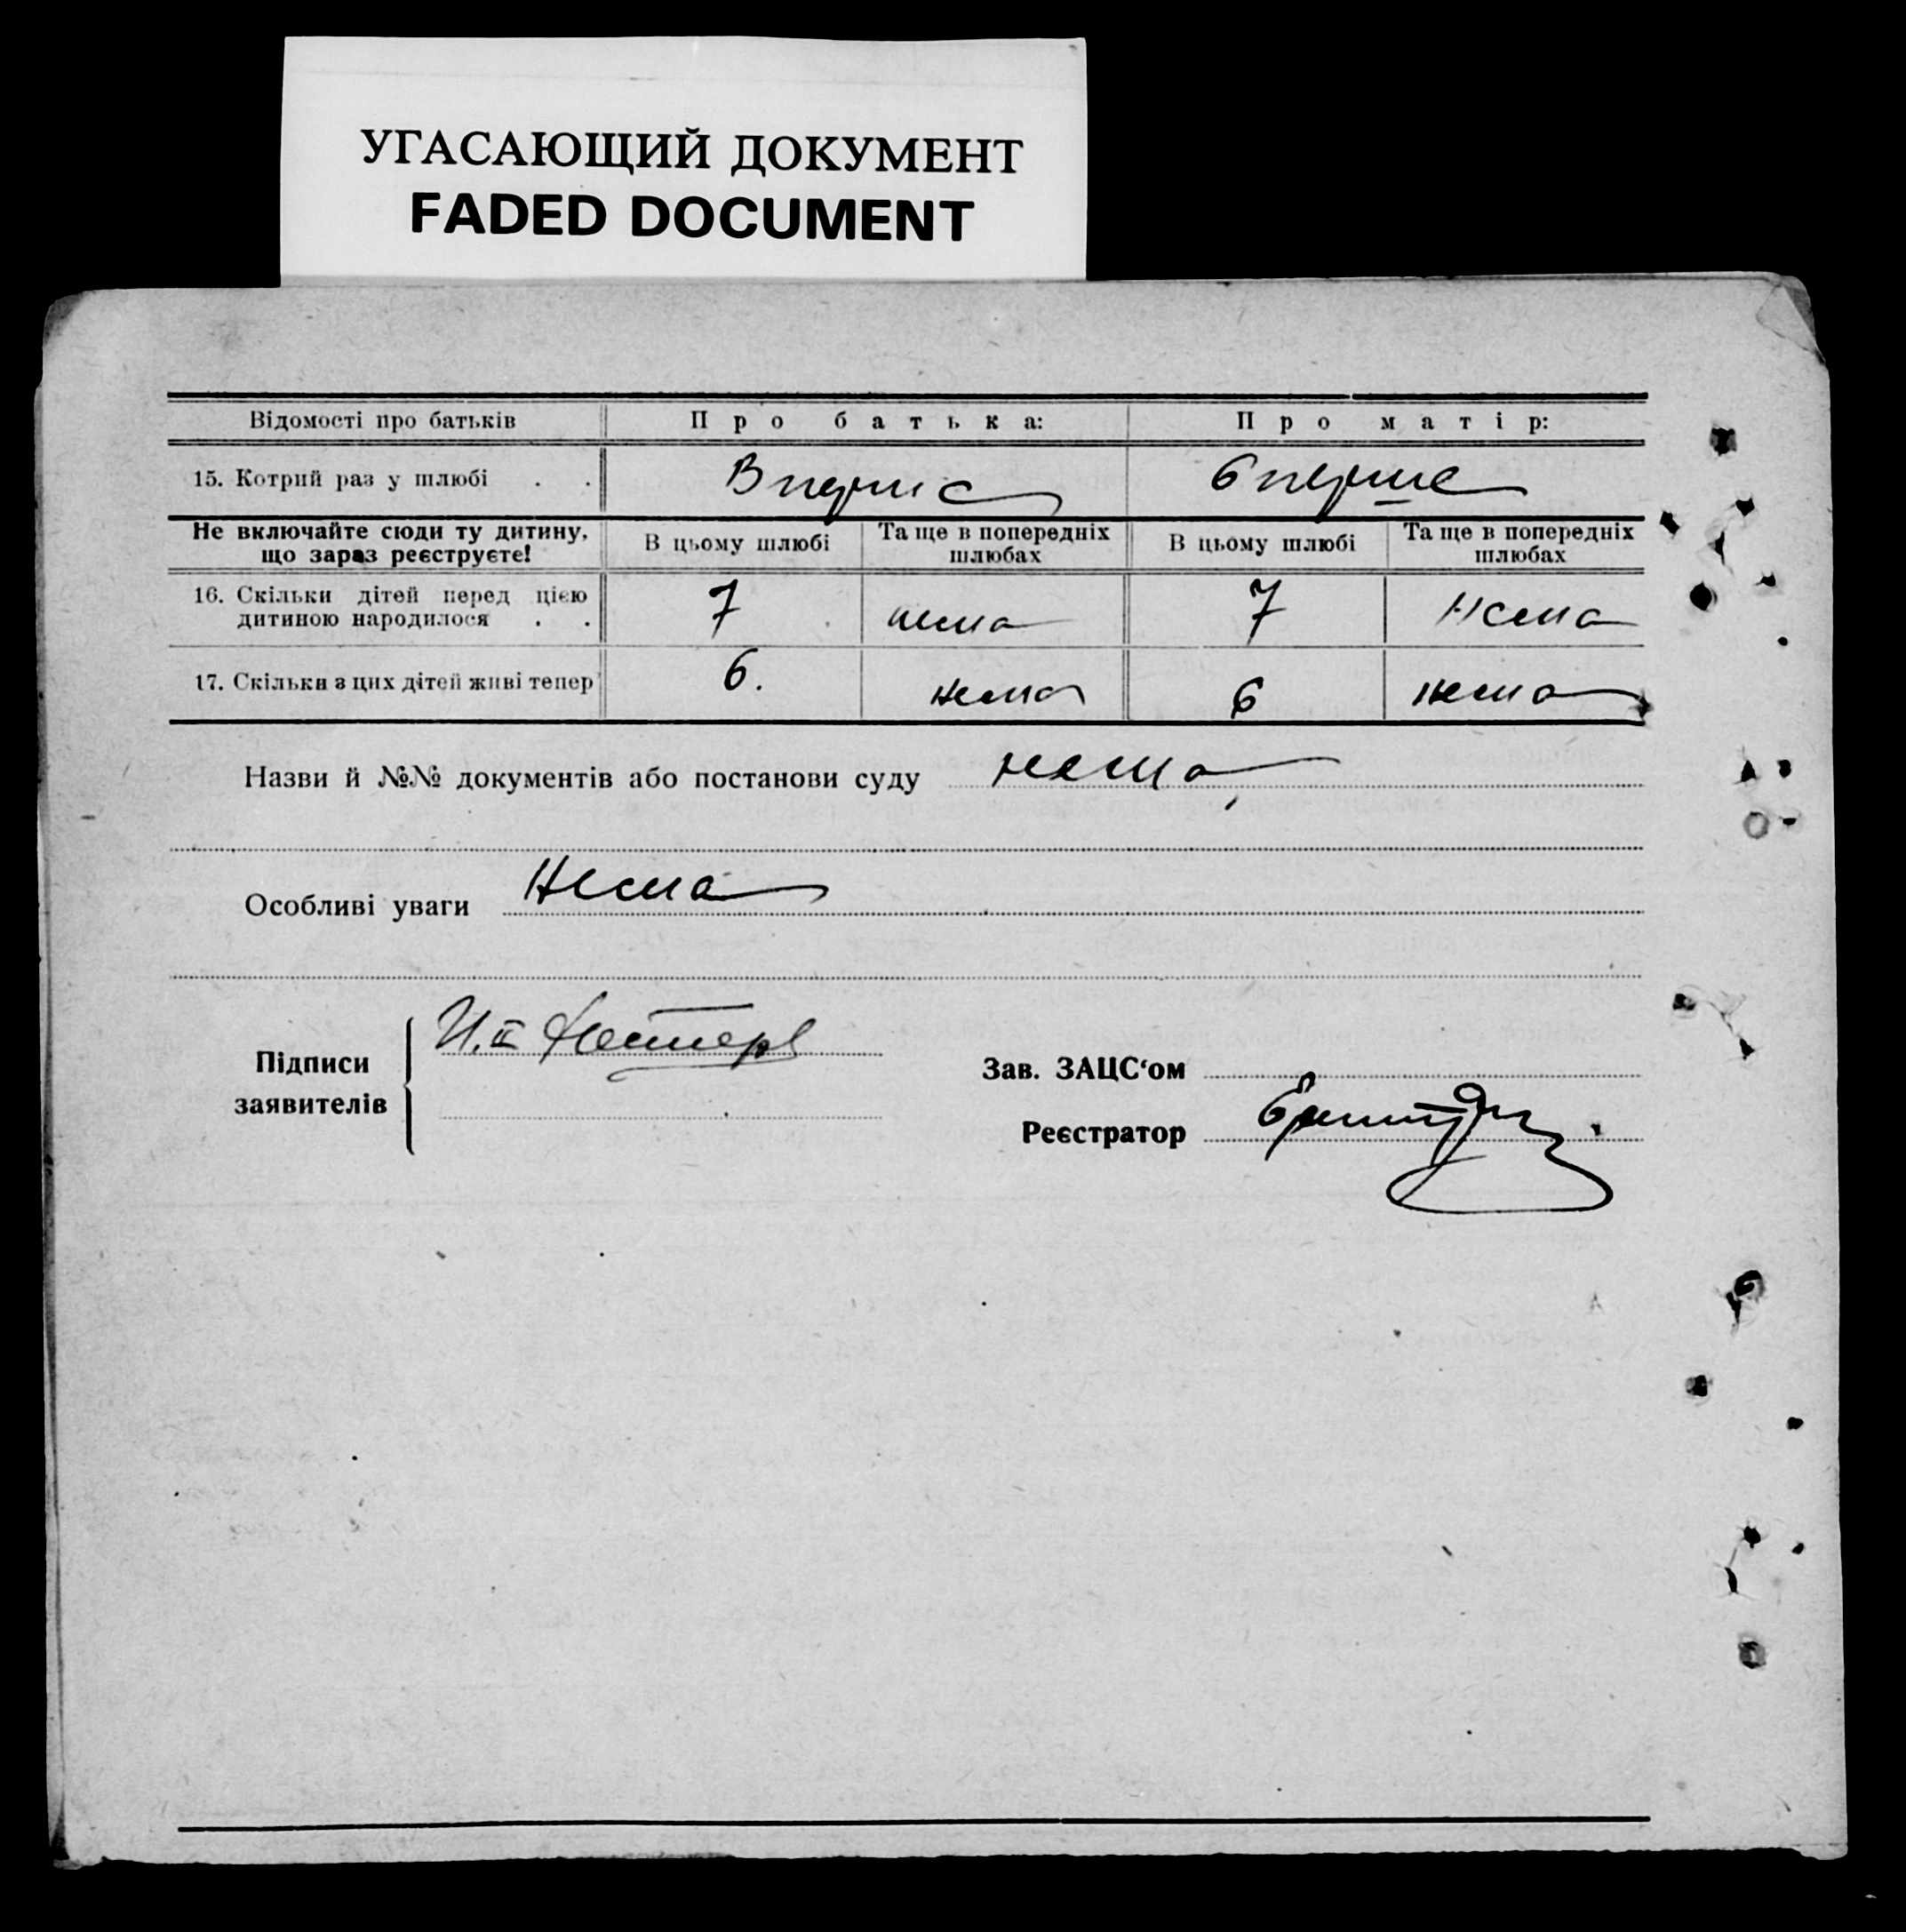 УГАСАЮЩИЙ ДОКУМЕНТ
FADED DOCUMENT
Відомості про батьків Про батька: Про матір:
15. Котрий раз у шлюбі . . Вперше вперше
Не включайте сюди ту дитину, що зараз реєструєте! В цьому шлюбі Та ще в попередніх шлюбах В цьому шлюбі Та ще в попередніх шлюбах
16. Скільки дітей перед цією
дитиною народилося . . 7 нема 7 Нема
17. Скільки з цих дітей живі тепер 6. нема 6 нема
Назви й №№ документів або постанови суду нема
Особливі уваги Нема
Підписи
заявителів
Зав. ЗАЦС‘ом
Реєстратор